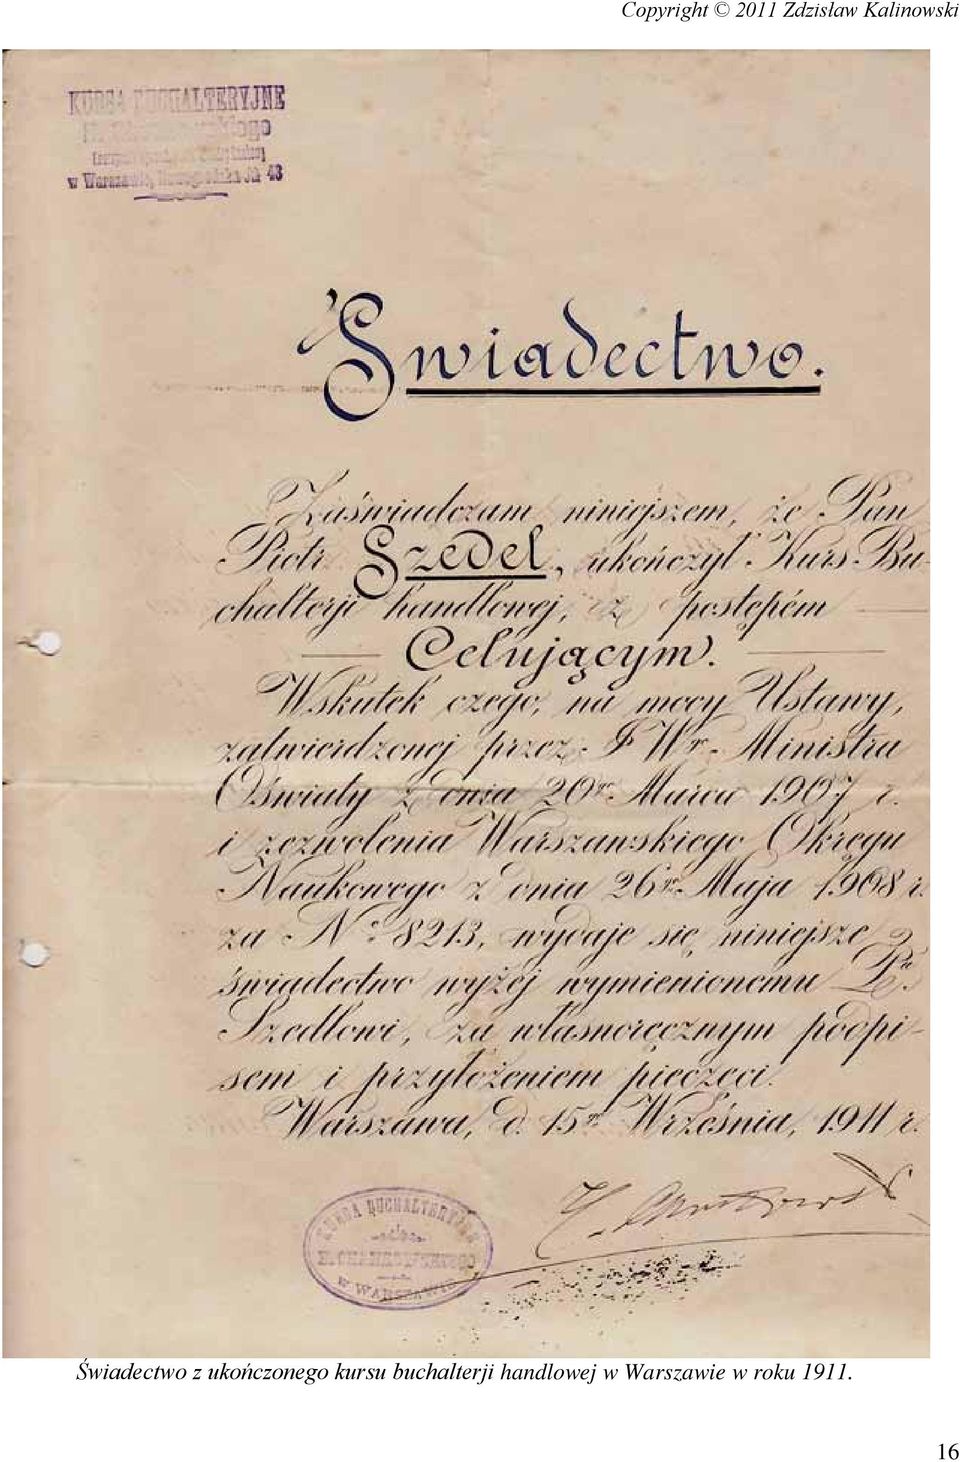 Copyright © 2011 Zdzisław Kalinowski
KURSA BUCHALTERYJNE
w Warszawie, № 43
Świadectwo.
Zaświadczam niniejszem, że Pan
Piotr Szedel, ukończył Kurs Bu-
chalterji handlowej, z postępem
Celującym.
Wskutek czego, na mocy Ustawy,
zatwierdzonej przez P. Wgo Ministra
Oświaty z dnia 20go Marca 1907 r.
i zezwolenia Warszawskiego Okręgu
Naukowego z dnia 26go Maja 1908 r.
za No 8213, wydaje się niniejsze
świadectwo wyżej wymienionemu Pu.
Szedlowi, za własnoręcznym podpi-
sem i przyłożeniem pieczęci.
Warszawa, d. 15go Września, 1911 r.
KURSA BUCHALTERYJNE
w WARSZAWIE
Świadectwo z ukończonego kursu buchalterji handlowej w Warszawie w roku 1911.
16